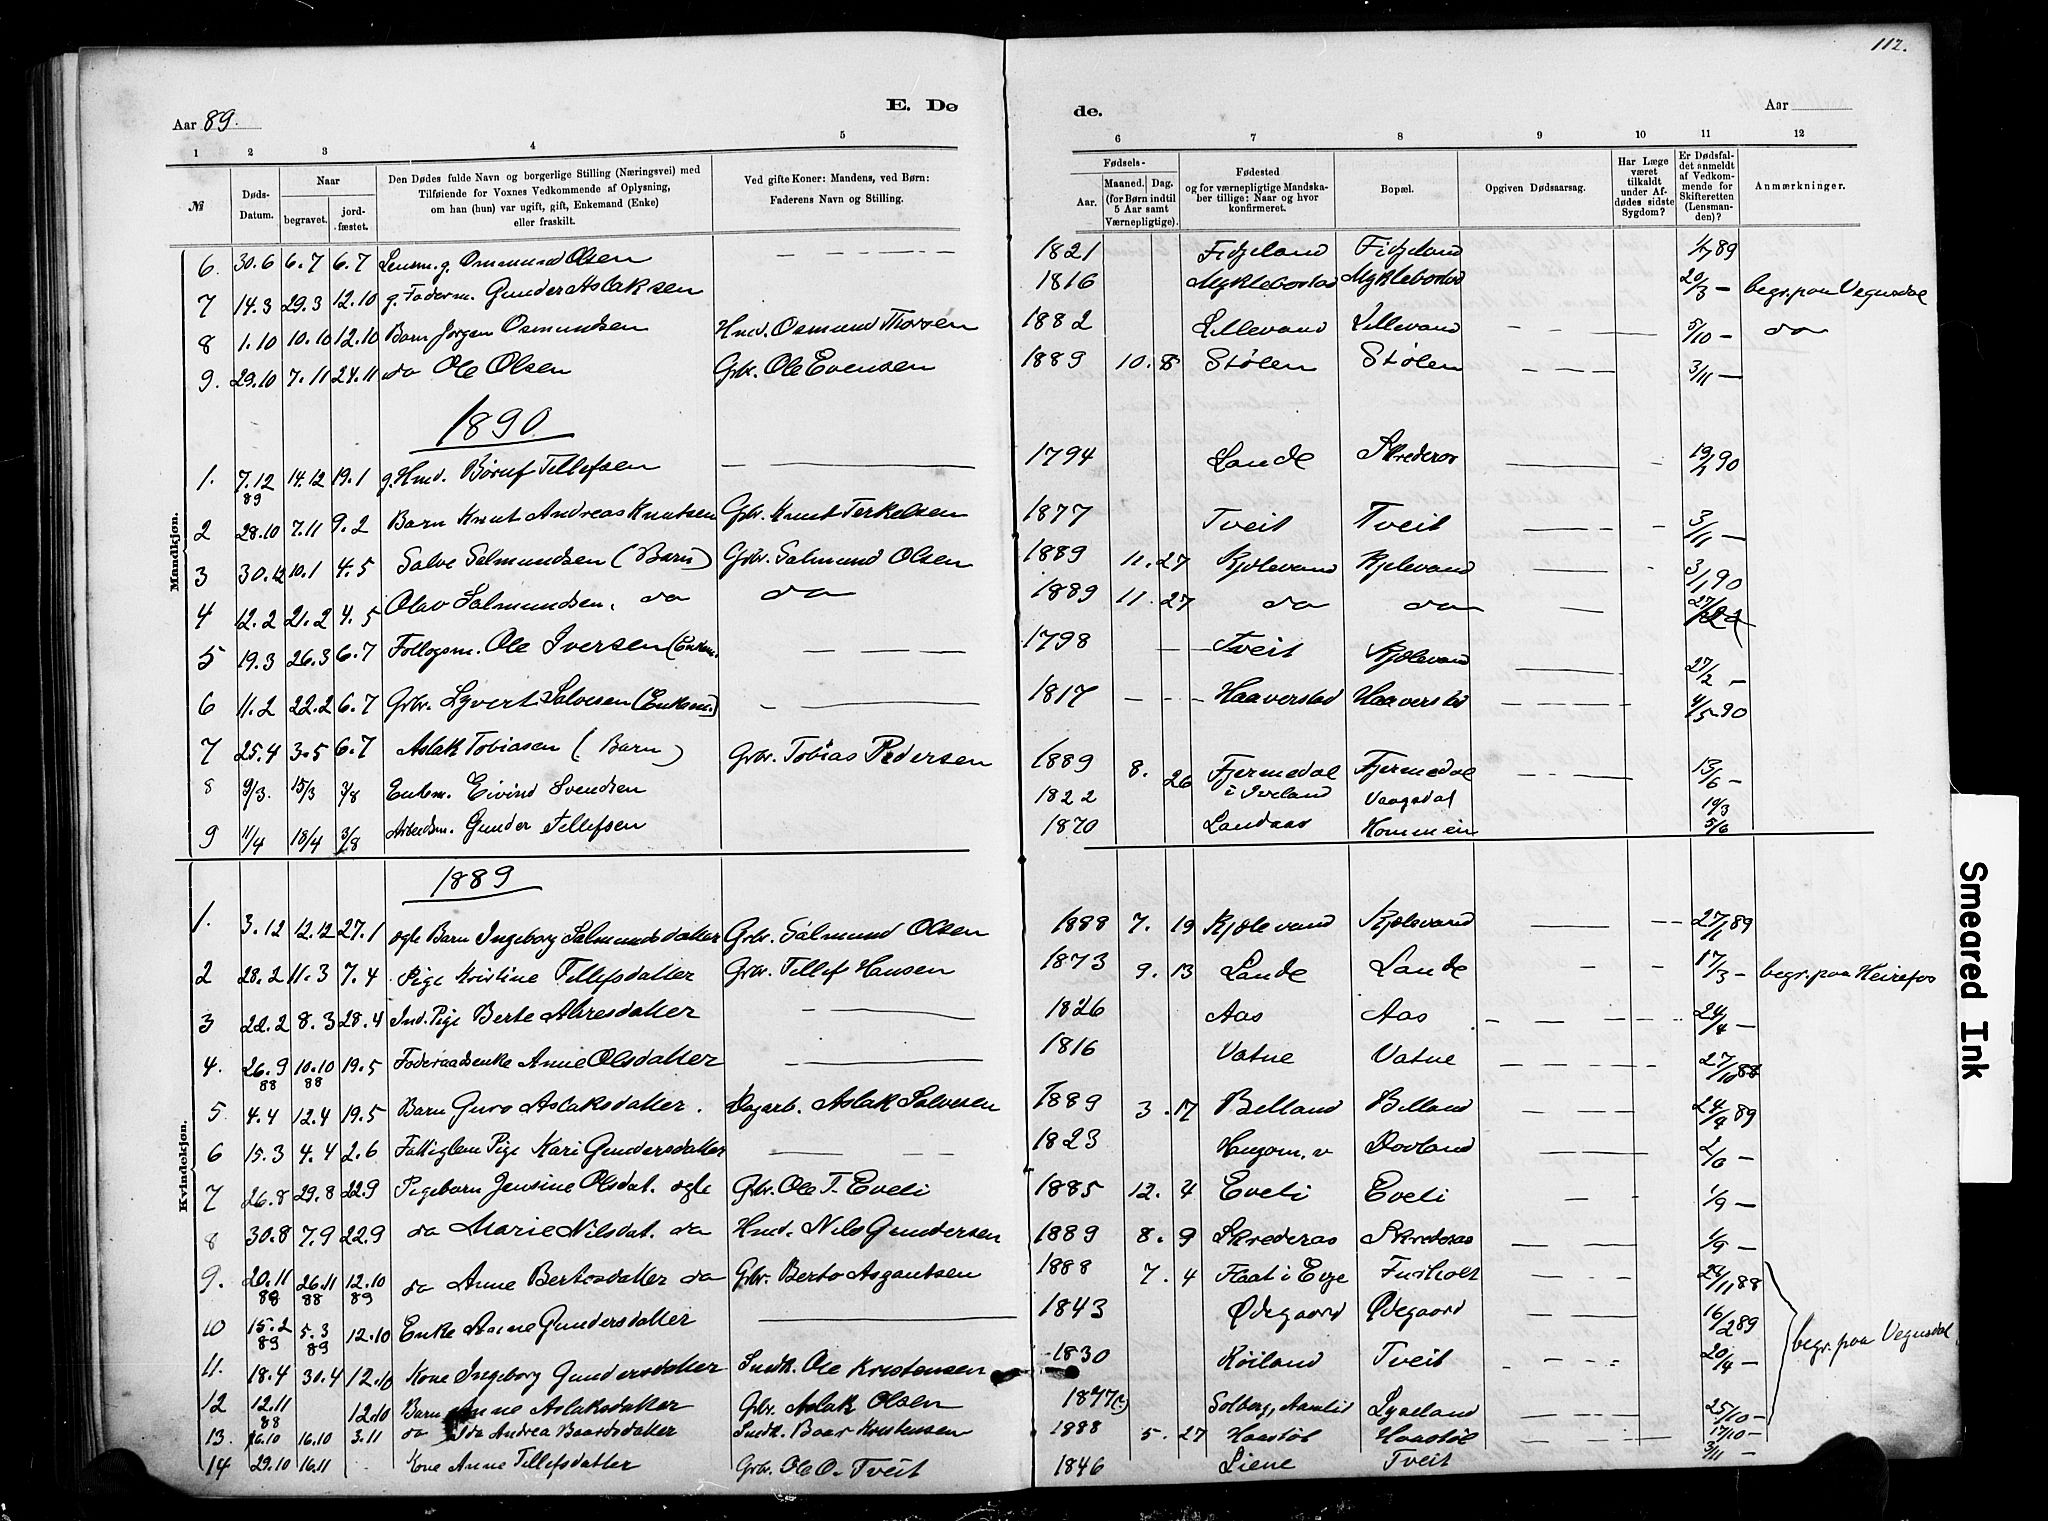 112.
Aar 89.
E. Dø
de.
Aar
1 2 3 4 5 6 7 8 9 10 11 12
№
Døds-Datum.
Naar
begravet.
jord-fæstet.
Den Dødes fulde Navn og borgerlige Stilling (Næringsvei) med
Tilføiende for Voxnes Vedkommende af Oplysning,
om han (hun) var ugift, gift, Enkemand (Enke)
eller fraskilt.
Ved gifte Koner: Mandens, ved Børn:
Faderens Navn og Stilling.
Fødsels-
Aar.
Maaned. Dag.
(for Børn indtil
5 Aar samt
Værnepligtige).
Fødested
og for værnepligtige Mandska-
ber tillige: Naar og hvor
konfirmeret.
Bopæl.
Opgiven Dødsaarsag.
Har Læge
været
tilkaldt
under Af-
dødes sidste
Sygdom?
Er Dødsfal-
det anmeldt
af Vedkom-
mende for
Skifteretten
(Lensman-
den)?
Anmærkninger.
Mandkjøn.
6. 30.6 6.7 6.7 Lensm. g. Osmund Olsen 1821 Fidjeland Fidjeland 1/7 89
7 14.3 29.3 12.10 g. Føderm. Gunder Aslaksen 1816 Myklebostad Myklebostad 20/3 — begr. paa Vegusdal
8 1.10 10.10 12.10 Barn Jørgen Osmundsen Hmd. Osmund Thorsen 1882 Lillevand Lillevand 5/10 — do
9. 29.10 7.11 24.11 do Ole Olsen Gbr. Ole Evensen 1889 10. 8 Stølen Stølen 3/11 —
1890
1. 7.12 89 14.12 19.1 g. Hmd. Tellefsen 1794 Lande Skrederas 19/1 90
2 28.10 7.11 9.2 Barn Knut Andreas Knutsen Gbr. Knut Terkelsen 1877 Tveit Tveit 3/11 —
3 30.12 10.1 4.5 Salve Salmundsen (Barn) Gbr. Salmund Olsen 1889 11. 27 Kjelevand Kjelevand 3/1 90
4 12.2 21.2 4.5 Olav Salmundsen. do do 1889 11. 27 do do
5 19.3 26.3 6.7 Ole Iversen (Enkem. 1798 Tveit Kjelevand 27/2 —
6 11.2 22.2 6.7 Gbr. Syvert Salvesen (Enkem.) 1817 Haaverstad Haaverstad 4/5 90
7 25.4 3.5 6.7 Aslak Tobiasen (Barn) Gbr. Tobias Pedersen 1889 8. 26 Fjermedal Fjermedal 13/6 —
8 9/3. 15/3 3/8 Enkem. Eivind Svendsen 1822 i Iveland Vaagsdal 19/3
9 11/4 18/4 3/8 Arbeidsm. Gunder Tellefsen 1870 Landaas 5/6
Kvindekjøn.
1889
1. 3.12 12.12 27.1 ægte Barn Ingeborg Salmundsdatter Gbr. Salmund Olsen 1888 7. 19 Kjelevand Kjelevand 27/1 89
2 28.2 11.3 7.4 Pige Kristine Tellefsdatter Gbr. Tellef Hansen 1873 9. 13 Lande Lande 17/3 — begr. paa Heirefos
3 22.2 8.3 28.4 Ind. Pige Berte 1826 Aas Aas 24/4 —
4. 26.9 88 10.10 88 19.5 Føderaadsenke Anne Olsdatter 1816 Vatne Vatne 27/10 88
5. 4.4 12.4 19.5 Barn Guro Aslaksdatter. Dagarb. Aslak Salvesen 1889 3. 17 Belland Belland 24/4 89
6 15.3 4.4 2.6 Fattiglem Pige Kari Gundersdatter 1823 Dovland 2/6 —
7 26.8 29.8 22.9 Pigebarn Jensine Olsdat. ægte Gbr. Ole T. Eveli 1885 12. 4 Eveli Eveli 1/9 —
8 30.8 7.9 22.9 do Marie Nilsdat. do Hmd. Nils Gundersen 1889 8. 9 Skrederas Skrederas 1/9 —
9. 20.11 88 26.11 88 12.10 89 do Anne Bertesdatter do Gbr. Berto Asgautsen 1888 7. 4 Flaat i Evje Furholt 24/11 88
10 15.2 89 5.3 89 12.10 Enke Anne Gundersdatter 1843 Ødegaard Ødegaard 16/2 89
begr. paa Vegusdal
11. 18.4 30.4 12.10 Kone Ingeborg Gundersdatter Indk. Ole Kristensen 1830 Røiland Tveit 20/4 —
12 12.11 88 12.10 Barn Anne Aslaksdatter Gbr. Aslak Olsen 1877 Solberg, Aamlid Lyseland 25/10 —
13. 16.10 16.10 3.11 do Ida Andrea Baardsdatter Indk. Baar Kristensen 1888 5. 27 Haastøl Haastøl 17/10 —
14 29.10 16.11 Kone Anne Tellefsdatter Gbr. Ole O. Tveit 1846 Liene Tveit 3/11 —
Smeared Ink